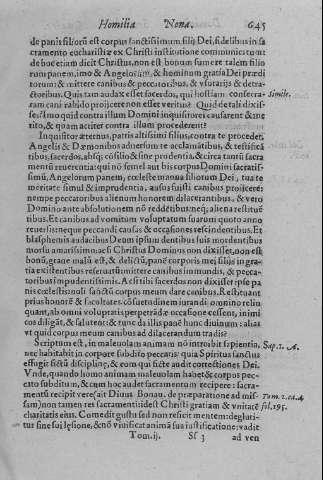 Homilia Nona. 645
de panis filiorū est corpus sanctissimum filij Dei, fidelibus in sa
cramento eucharistiæ ex Christi institutione communicatum:
de hoc etiam dicit Christus, non est bonum sumere talem filio
rum panem, imò & Angelorum, & hominum gratia Dei prædi
torum: & mittere canibus & peccatoribus, & vsurarijs & detra-
ctoribus. Quis tam audax esset sacerdos, qui hostiam consecra- Simile.
ram cani rabido projicere non esset veritus? Quid de tali dixis-
ses? imo quid contra illum Domini inquisitores causarent & me
ritò, & quam aciter contra illum procederent?
Inquisitor æternus, patris altissimi filius, contra te procedet,
Angelis & Dæmonibus aduersum te acclamātibus, & testifica
tibus, sacerdos, absq́; cōsilio & sine prudentia, & circa tantū sacra
mentū reuerentia: qui nō semel aut bis corpus Domini sacratis-
simū, Angelorum panem ecclesiæ manna filiorum Dei, tua te
meritate simul & imprudentia, ausus fuisti canibus proijcere:
nempe peccatoribus alienum honorem dilacerantibus, & vero
Domino ante absolutionem nō reddētibus: neq́; aliena restituē
tibus. Et canibus ad vomitum voluptatum suarum quoto anno
reuersis: neque peccandi causas & occasiones rescindentibus. Et
blasphemis audacibus Deum ipsum dentibus suis mordentibus
morsu amarissimo: ac si Christus Dominus non dixisset, non est
bonū, graue malū est, & delictū, panē corporis mei filijs in gra-
tia existentibus reseruatū mittere canibus immundis, & pecca-
toribus impudentissimis. Ac si tis sacerdos non dixisset ipse pa
nis ecclesiasticus sanctū corpus meum dare canibus. Restituant
prius honorē & facultates, cōsuetudinem iurandi omnino relin
quant, ab omni voluptatis perpetrādæ occasione cessent, inimi
cos diligāt, & salutent: & tunc da illis panē hunc diuinum: alias
vt quid corpus meum canibus ad dilacerandum tradis?
Scriptum est, in maleuolam animam nō introibit sapientia, Sap. 1. A.
nec habitabit in corpore subdito peccatis: quia Spiritus sanctus
effugit fictū disciplinę, & eorum qui ficte audit correctiones Dei.
Vnde, quando homo animam maleuolam habet & corpus pec-
cato subditum, & cum hoc audet sacramentum recipere: sacra-
mentū recipit vere (ait Diuus Bonau. de præparatione ad mis- Tom. 2. ca. 4
sam) non tamen res sacramenti: id est Christi gratiam & vnitatē fol. 195.
charitatis eius. Comedit gustu sed non reficit mentem: degluti-
tur sine sui lęsione, & nō viuificat animā sua iustificatione: vadit
Tom. ij. Sſ 3 ad ven